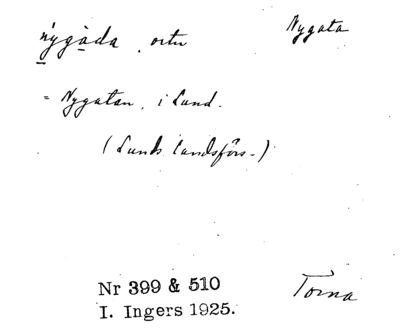 nýgàda, ortn Nygata
= Nygatan, i Lund.
(Lunds landsförs.)
Nr 399 & 510 Torna
I. Ingers 1925.